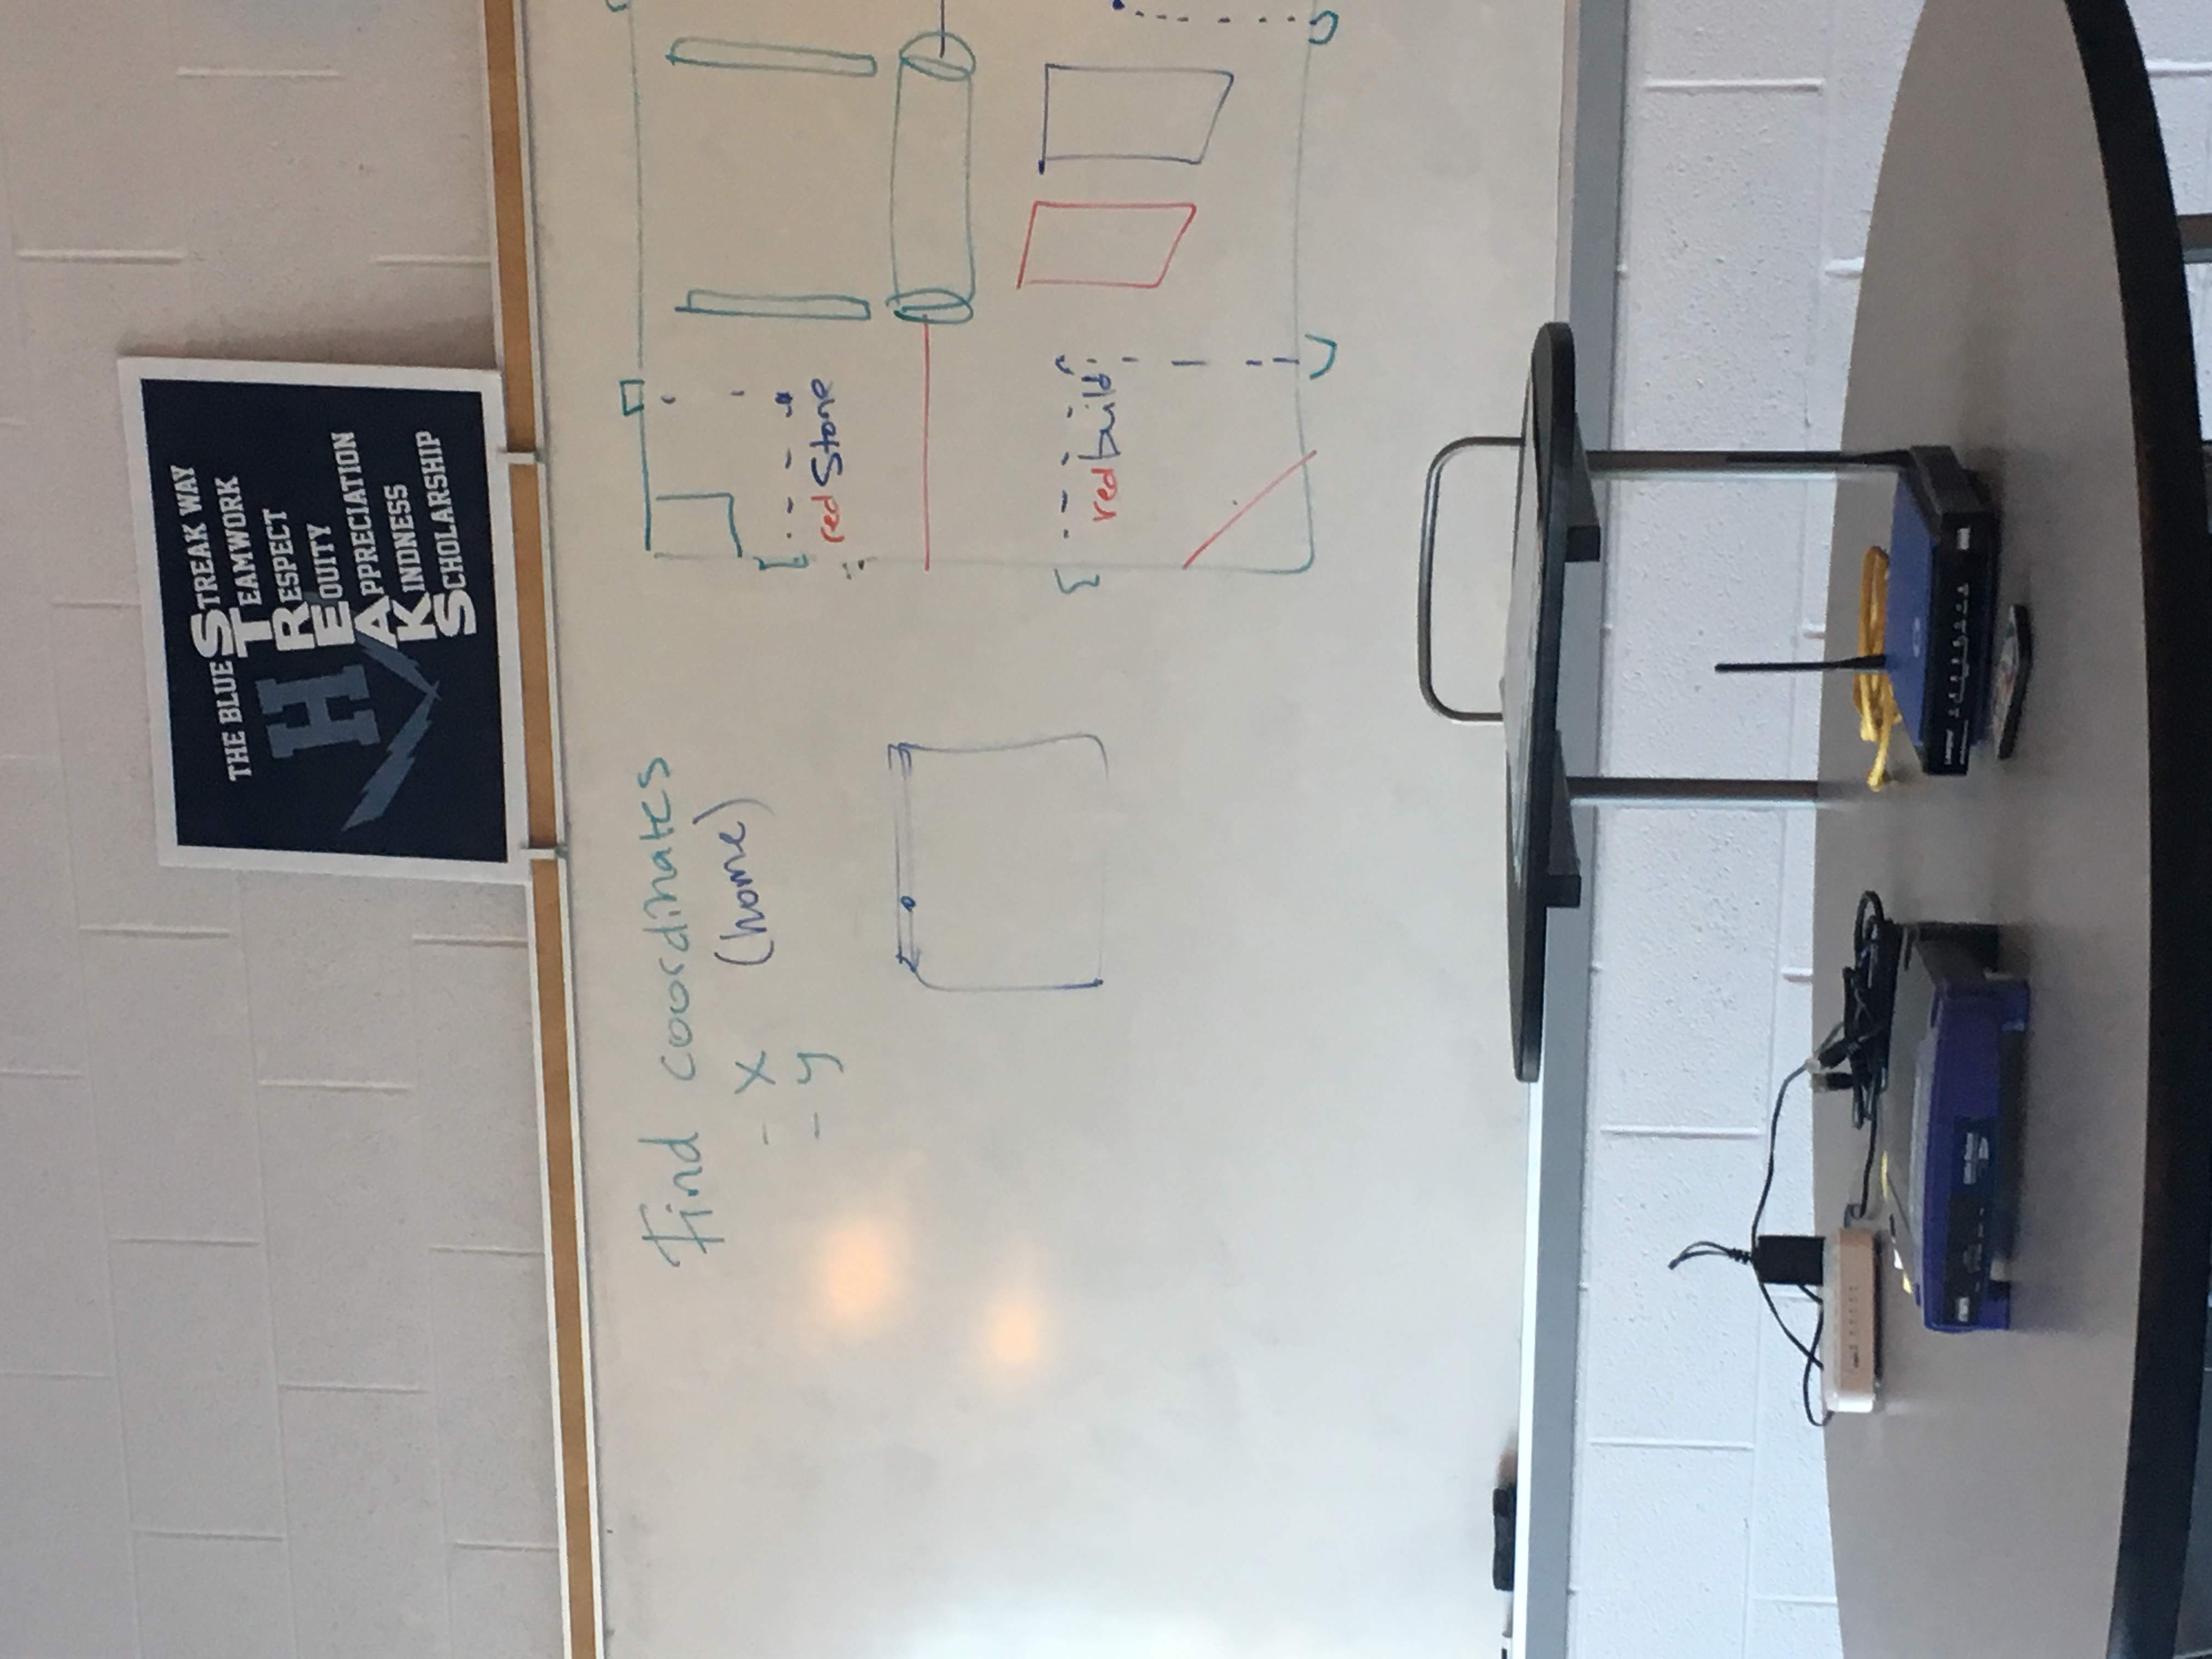 THE BLUE STREAK WAY
TEAMWORK
RESPECT
EQUITY
APPRECIATION
KINDNESS
SCHOLARSHIP
H
Find coordinates
- x (home)
- y
red Stone
red build